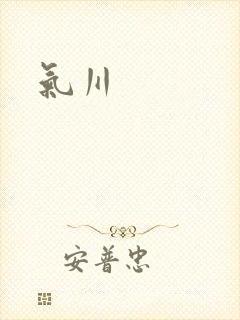 氣川
安普忠